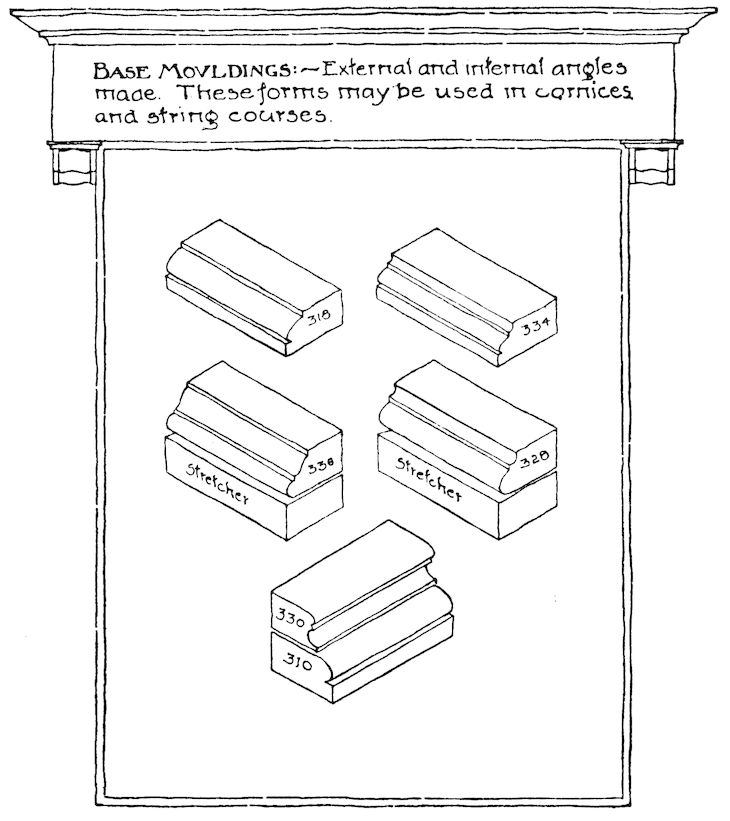 BASE MOVLDINGS:~External and internal angles
made. These forms may be used in cornices
and string courses.
318
334
338
Stretcher
328
Stretcher
330
310